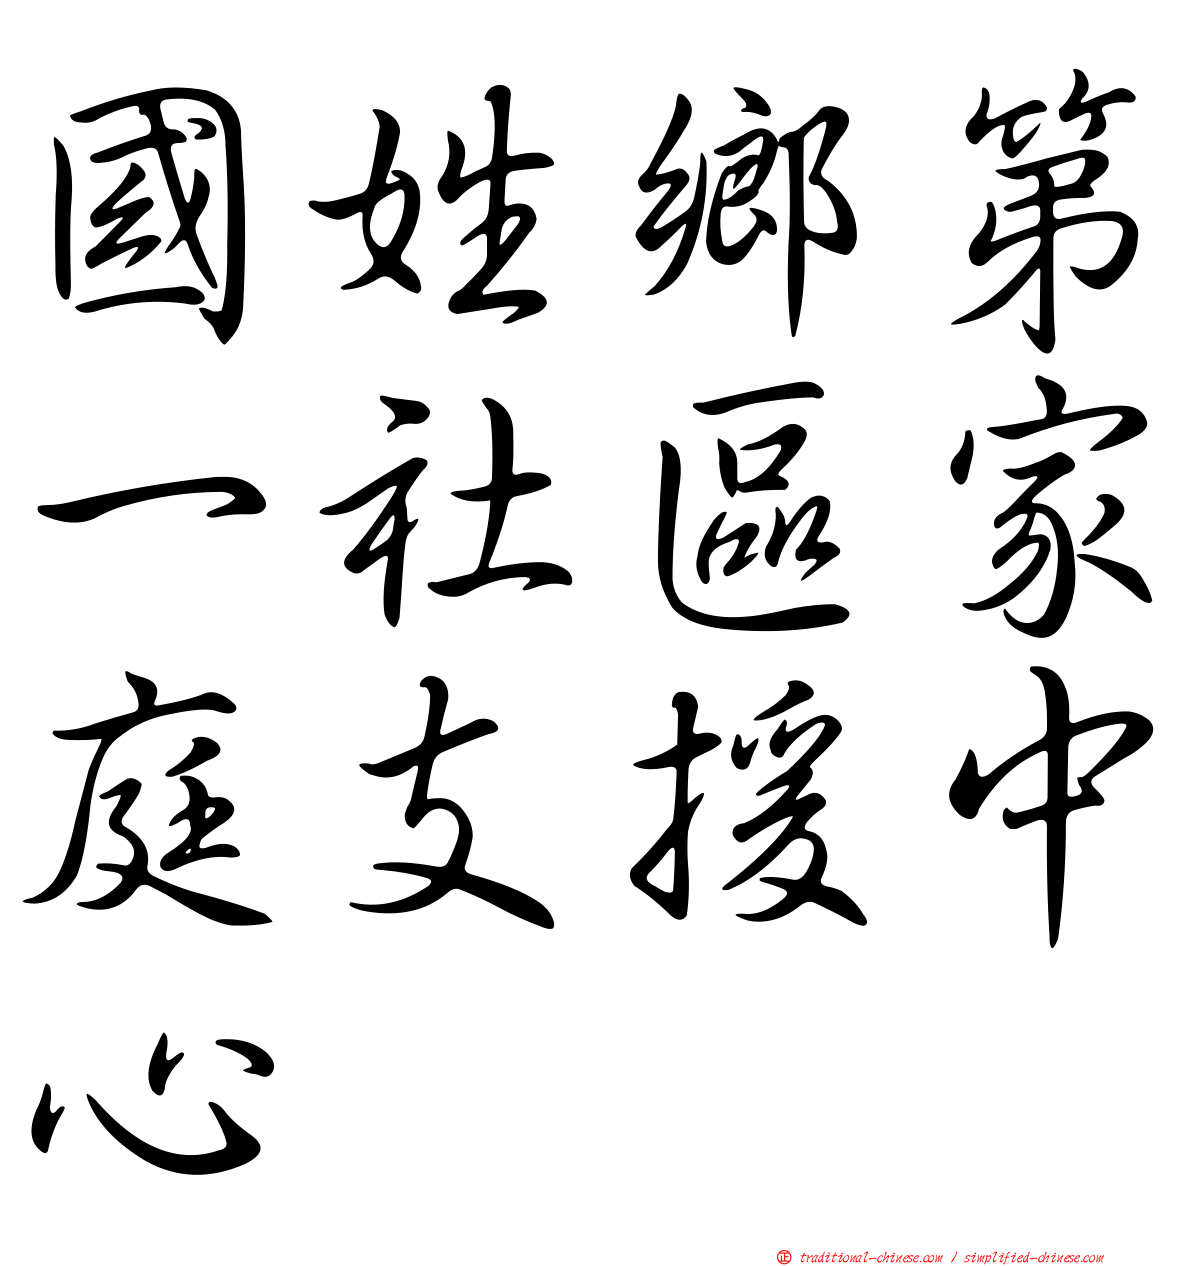 國姓鄉第
一社區家
庭支援中
心
㊣ traditional-chinese.com / simplified-chinese.com